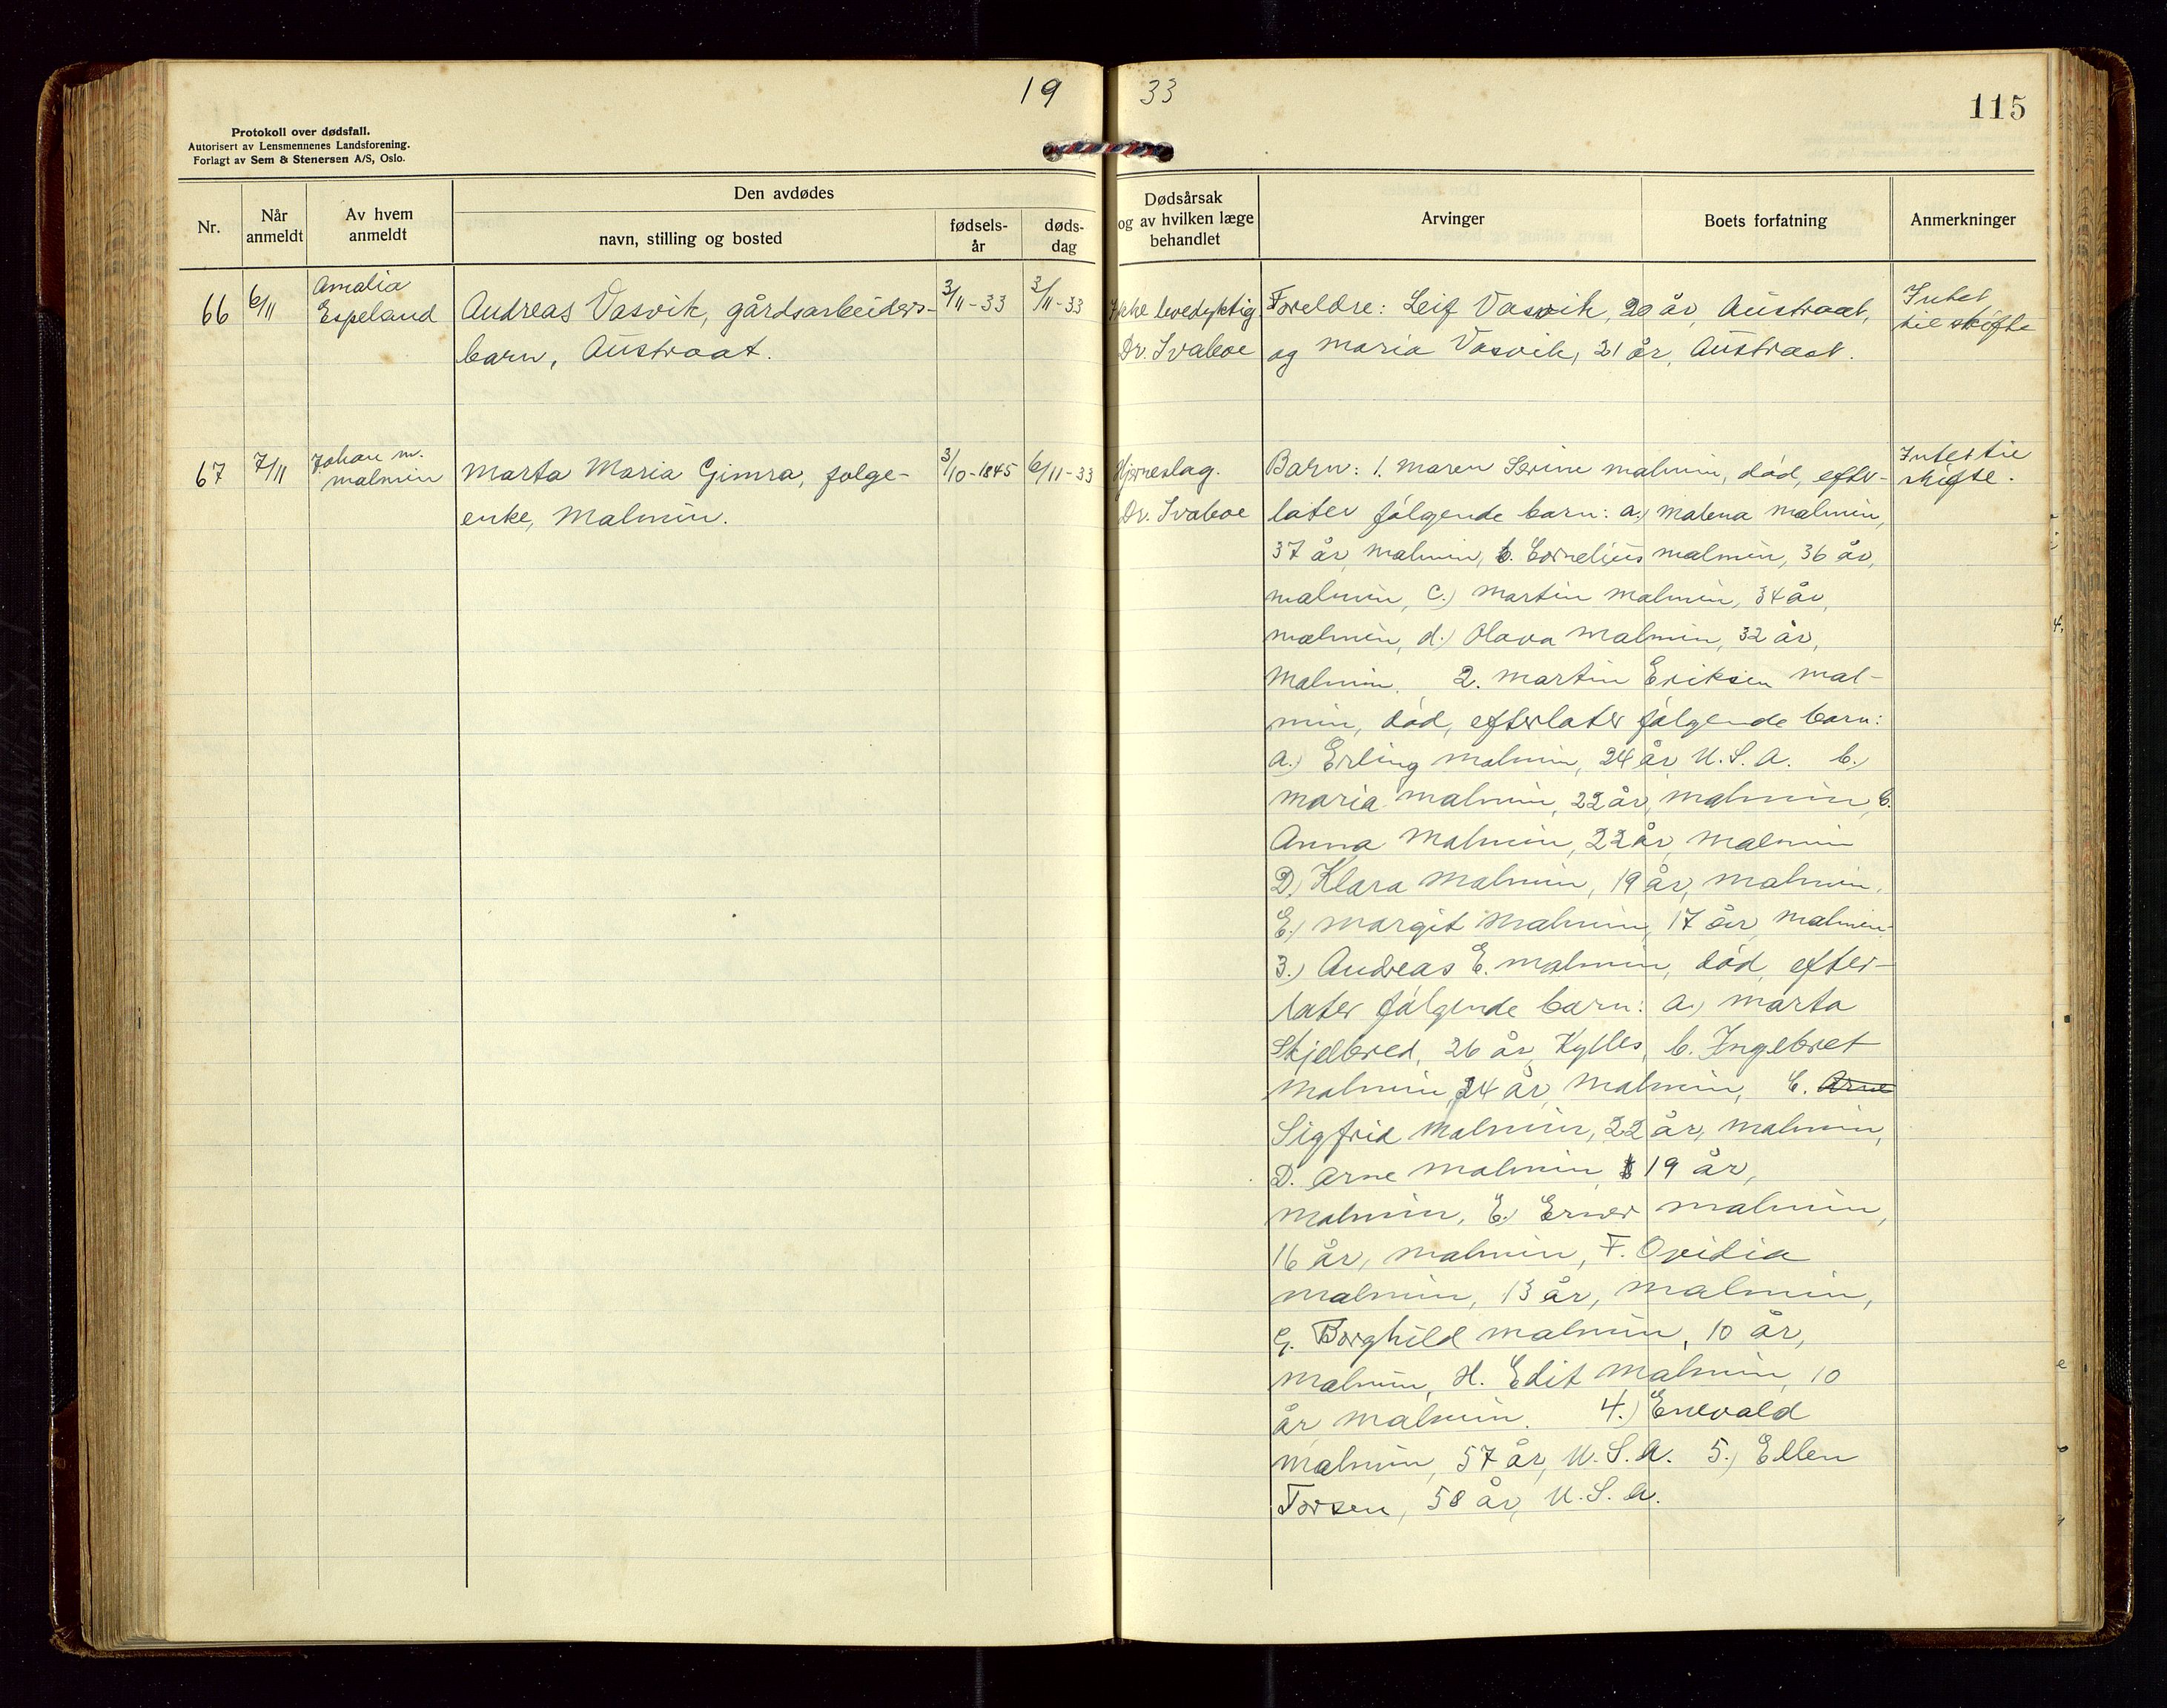 19 33
115
Protokoll over dødsfall.
Autorisert av Lensmennenes Landsforening.
Forlagt av Sem & Stenersen A/S, Oslo.
Nr.
Når anmeldt
Av hvem anmeldt
Den avdødes
navn, stilling og bosted
fødsels-
år
døds-
dag
Dødsårsak
og av hvilken læge
behandlet
Arvinger
Boets forfatning
Anmerkninger
66
6/11
Amalia
Espeland
Andreas Vasvik, gårdsarbeiders-
barn, Austraat.
3/11-33
3/11-33
Ikke levedyktig
Dr. Svaboe
Foreldre: Leif Vasvik, 20 år, Austraat,
og Maria Vasvik, 21 år, Austraat.
Intet
til skifte
67
7/11
Johan M.
Malmin
Marta Maria Gimra, folge-
enke, Malmin.
3/10-1845
6/11-33
Hjerneslag.
Dr. Svaboe
Barn: 1. Maren Serine Malmin, död, efter-
later fölgende barn: a.) Malena Malmin,
37 år, Malmin, b. Cornelius Malmin, 36 år,
Malmin, C.) Martin Malmin, 34 år,
Malmin, d.) Olava Malmin, 32 år,
Malmin. 2. Martin Eriksen Mal-
min, död, efterlater fölgende barn:
a.) Erling Malmin, 24 år, U.S.A. b.)
Maria Malmin, 22 år, Malmin, C.
Anna Malmin, 22 år, Malmin
D.) Klara Malmin, 19 år, Malmin.
E.) Margit Malmin, 17 år, Malmin.
3.) Andreas E. Malmin, död, efter-
later fölgende barn: a.) Marta
Skjelbred, 26 år, Kylles, b. Ingebret
Malmin, 24 år, Malmin, C. Arne
Sigfrid Malmin, 22 år, Malmin,
D. Arne Malmin, 19 år,
Malmin, E.) Erner Malmin,
16 år, Malmin, F. Ovidia
Malmin, 13 år, Malmin,
G. Borghild Malmin, 10 år,
Malmin, H. Edit Malmin, 10
år, Malmin. 4.) Enevald
Malmin, 57 år, U.S.A. 5.) Ellen
Torsen, 58 år, U.S.A.
Intet til
skifte.